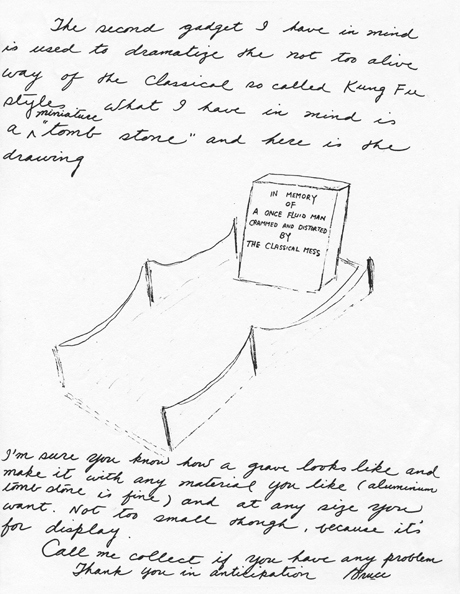 The second gadget I have in mind
is used to dramatize the not too alive
way of the Classical so called Kung Fu
styles. What I have in mind is
miniature
a ^ "tomb stone" and here is the
drawing
IN MEMORY
OF
A ONCE FLUID MAN
CRAMMED AND DISTORTED
BY
THE CLASSICAL MESS
I'm sure you know how a grave looks like and
make it with any material you like (aluminum
tomb stone is fine) and at any size you
want. Not too small though, because it's
for display.
Call me collect if you have any problem
Thank you in anticipation Bruce